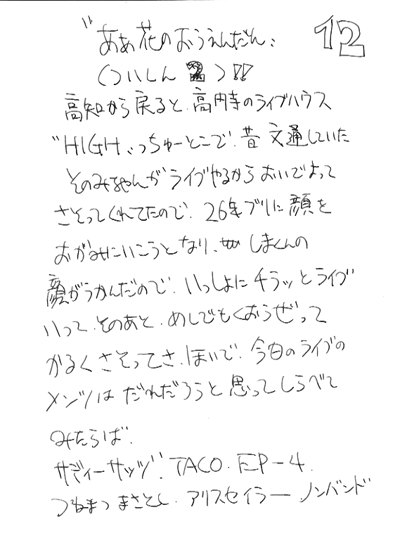 "ああ花のおうえんだん:
12
(ついしん)!!
高知から戻ると、高円寺のライブハウス
"HIGH、っちゅーとこで、昔文通していた
そのみちゃんがライブやるからおいでよって
さそってくれてたので、26年ブリに顔を
おがみにいこうとなり、しまくんの
顔がうかんだので、いっしょにチラッとライブ
いって、そのあと、めしでもくおうぜって
かるくさそってさ、ほいで、今日のライブの
メンツはだれだろうと思ってしらべて
みたらば、
サディーサッツ、TACO、EP-4、
つねまつまさとし、アリスセイラー ノンバンド